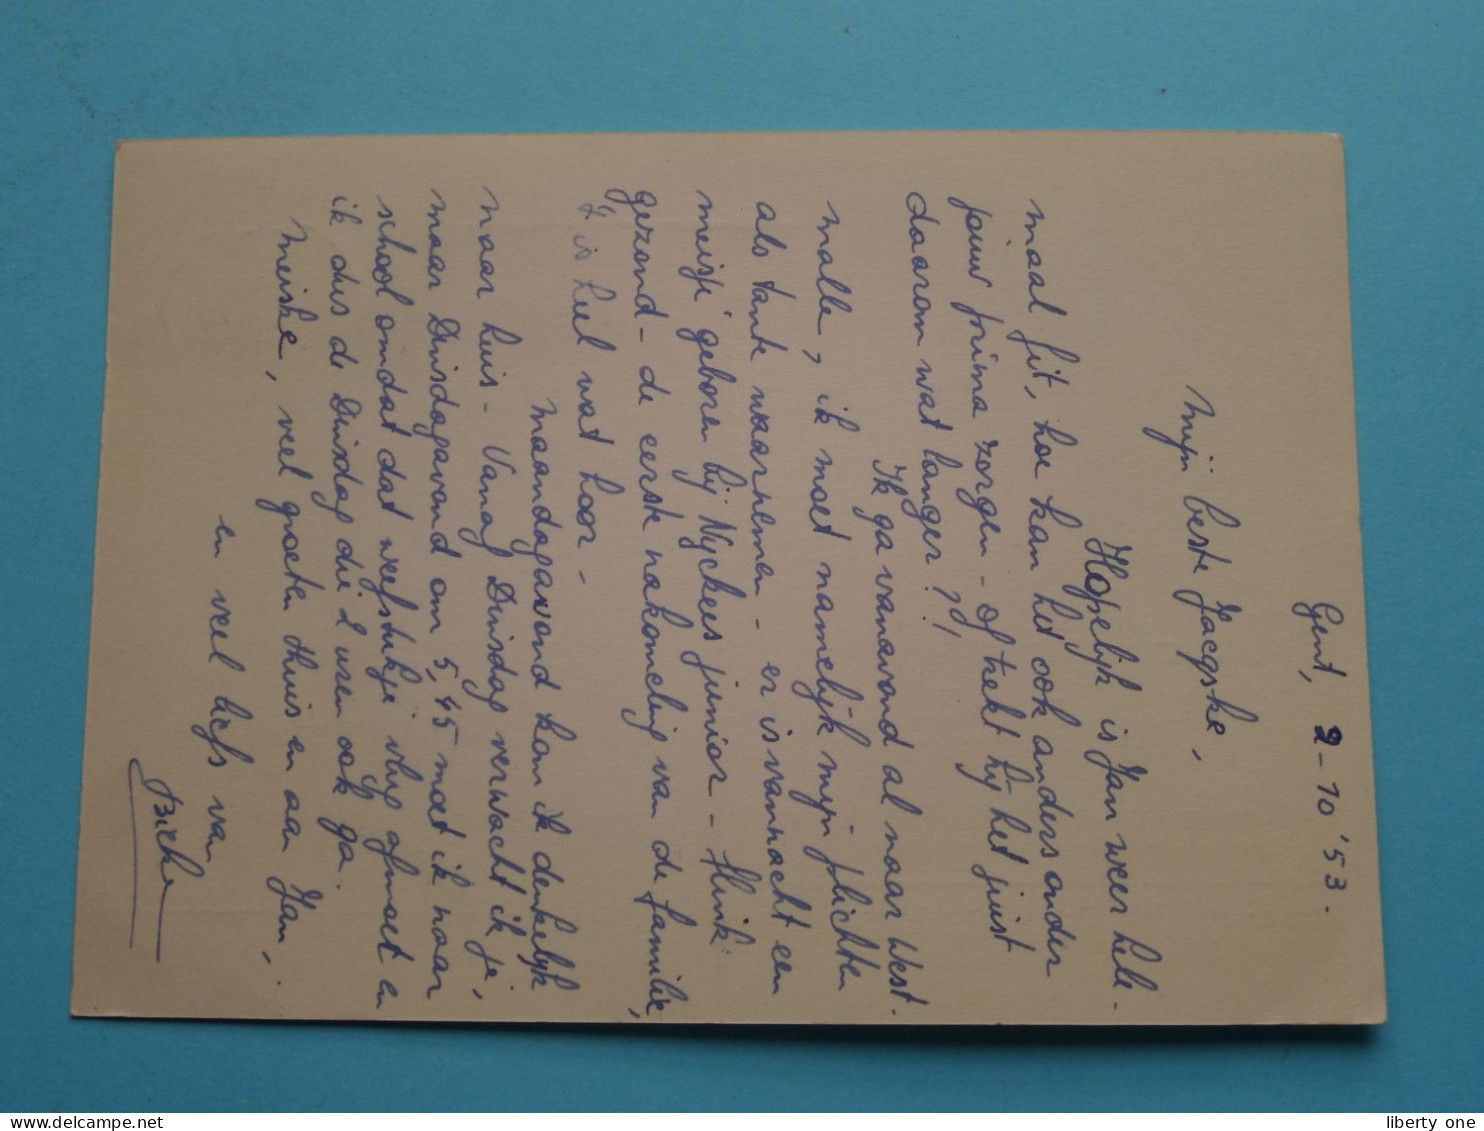 Gent, 2-10 '53.
Mijn beste Jacqske,
Hopelijk is Jan weer hele-
maal fit, hoe kan het ook anders onder
jouw prima zorgen - of trekt hij het juist
daarom wat langer?!,
Ik ga vanavond al naar West-
malle, ik moet namelijk mijn plichten
als tante waarnemen - er is vannacht een
meisje geboren bij Nyckees junior - flink
gezond - de eerste nakomeling van de familie,
't is heel wat hoor -
Maandagavond kom ik denkelijk
naar huis - Vanaf Dinsdag verwacht ik je,
maar Dinsdagavond om 5,45 moet ik naar
school omdat dat weefstukje vlug afmoet en
ik dus de Dinsdag die 2 uren ook ga.
Meiske, veel groeten thuis en aan Jan,
en veel liefs van